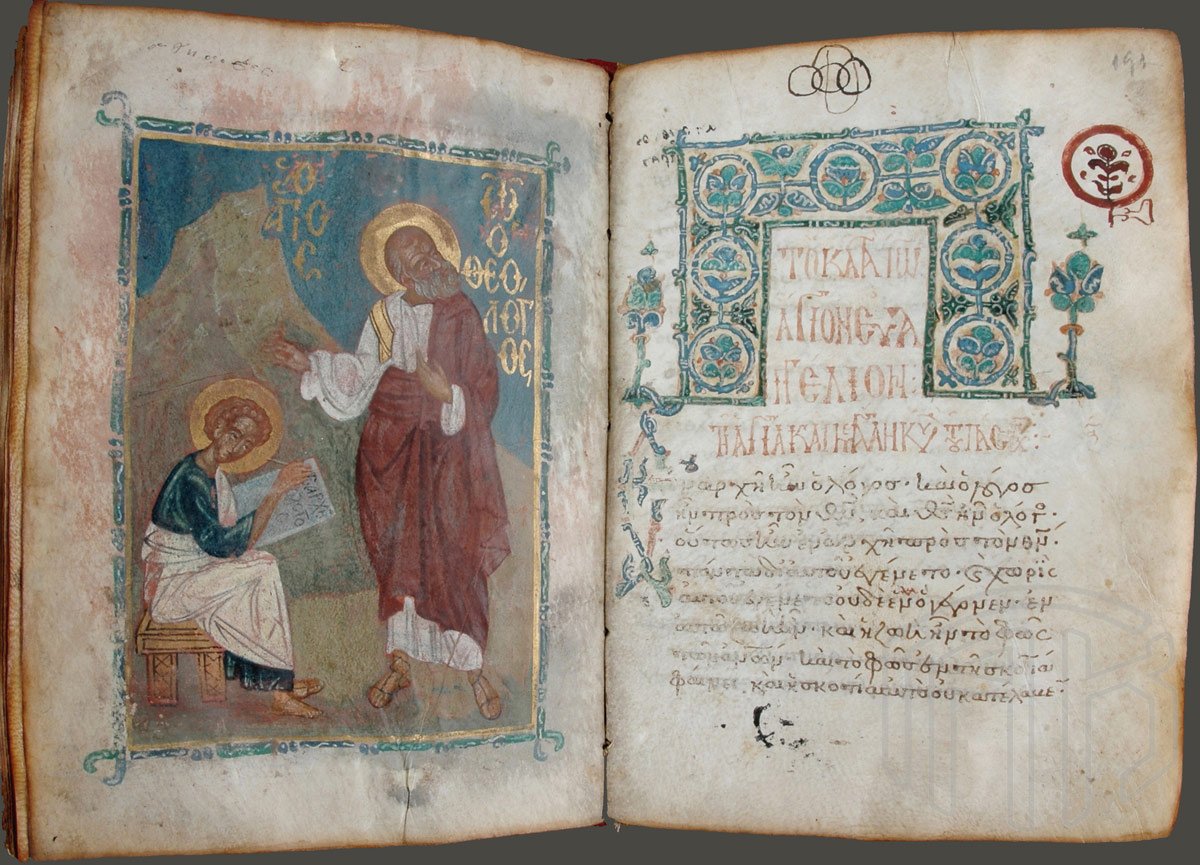 Ο
ΑΓΙΟC
ΙΩ
Ο
ΘΕΟ
ΛΟΓ
ΟC
191
ΤΟ ΚΑΤΑ ΙΩ
ΑΓΙΟΝ ΕΥΑ
ΓΓΕΛΙΟΝ·
ΤΗ ΑΓΙΑ ΚΑΙ ΜΕΓΑΛΗ ΚΥ ΤΟΥ ΠΑCΧΑ
Ἐν ἀρχῆ ἦν ὁ λόγος· καὶ ὁ λόγος
ἦν πρὸς τὸν θν, καὶ θς ἦν ὁ λόγος·
οὗτος ἦν ἐν ἀρχῆ πρὸς τὸν θν·
πάντα δι αυτοῦ ἐγένετο· ϗ χωρὶς
αὐτοῦ ἐγένετο οὐδὲ ἓν ὃ γέγονεν· ἐν
αὐτῶ ζωὴ ἦν· καὶ ἡ ζωὴ ἦν τὸ φῶς
τῶν ανων· καὶ τὸ φῶς ἐν τῆ σκοτία
φαίνει· καὶ ἡ σκοτία αὐτὸ οὐ κατέλαβε·